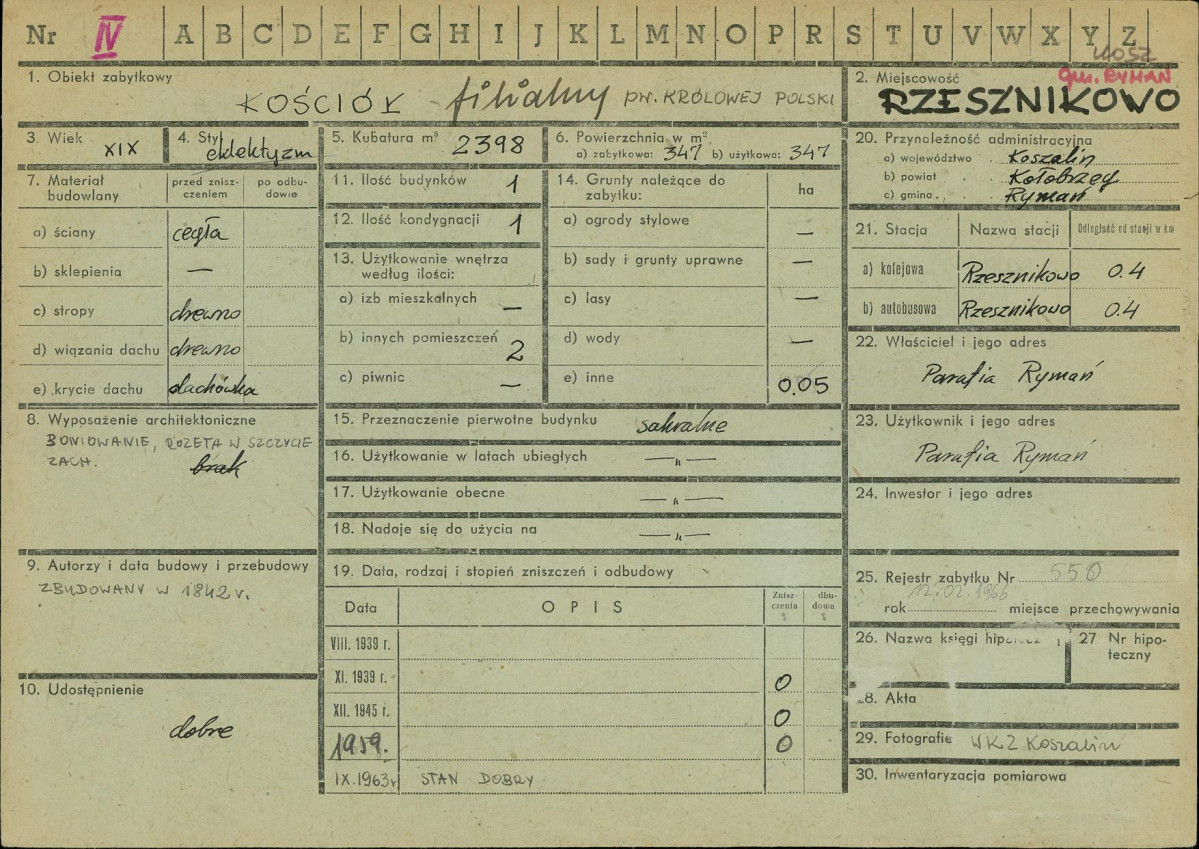 Nr IV A B C D E F G H I J K L M N O P R S T U V W X Y Z
1. Obiekt zabytkowy
KOŚCIÓŁ - filialny pw. KRÓLOWEJ POLSKI
2. Miejscowość
gm. RYMAŃ
RZESZNIKOWO
3. Wiek XIX
4. Styl eklektyzm
5. Kubatura m³ 2398
6. Powierzchnia w m²
a) zabytkowa: 347 b) użytkowa: 347
7. Materiał budowlany
przed znisz-
czeniem
po odbu-
dowie
a) ściany cegła
b) sklepienia —
c) stropy drewno
d) wiązania dachu drewno
e) krycie dachu dachówka
8. Wyposażenie architektoniczne
BONIOWANIE, ROZETA W SZCZYCIE
ZACH. brak
9. Autorzy i data budowy i przebudowy
ZBUDOWANY W 1842 r.
10. Udostępnienie
dobre
11. Ilość budynków 1
12. Ilość kondygnacji 1
13. Użytkowanie wnętrza
według ilości:
a) izb mieszkalnych —
b) innych pomieszczeń 2
c) piwnic —
14. Grunty należące do
zabytku: ha
a) ogrody stylowe —
b) sady i grunty uprawne —
c) lasy —
d) wody —
e) inne 0.05
15. Przeznaczenie pierwotne budynku sakralne
16. Użytkowanie w latach ubiegłych —"—
17. Użytkowanie obecne —"—
18. Nadaje się do użycia na —"—
19. Data, rodzaj i stopień zniszczeń i odbudowy
Data OPIS
Znisz-
czenia
dbu-
dowa
VIII. 1939 r.
XI. 1939 r. 0
XII. 1945 r. 0
1959. 0
IX.1963r STAN DOBRY
20. Przynależność administracyjna
a) województwo Koszalin
b) powiat Kołobrzeg
c) gmina Rymań
21. Stacja Nazwa stacji Odległość od stacji w km
a) kolejowa Rzesznikowo 0.4
b) autobusowa Rzesznikowo 0.4
22. Właściciel i jego adres
Parafia Rymań
23. Użytkownik i jego adres
Parafia Rymań
24. Inwestor i jego adres
25. Rejestr zabytku Nr 550
12.02.1966
rok miejsce przechowywania
26. Nazwa księgi
27 Nr hipo-
teczny
28. Akta
29. Fotografie WKZ Koszalin
30. Inwentaryzacja pomiarowa